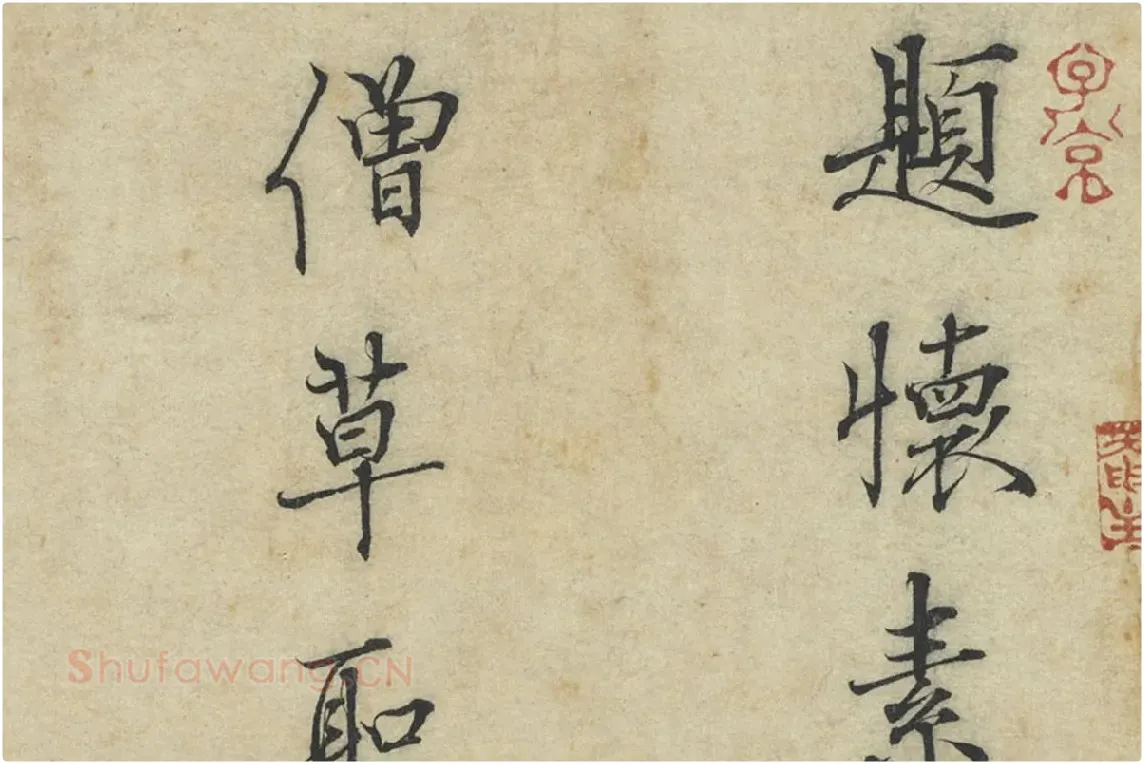 題懷素
僧草聖
Shufawang.CN